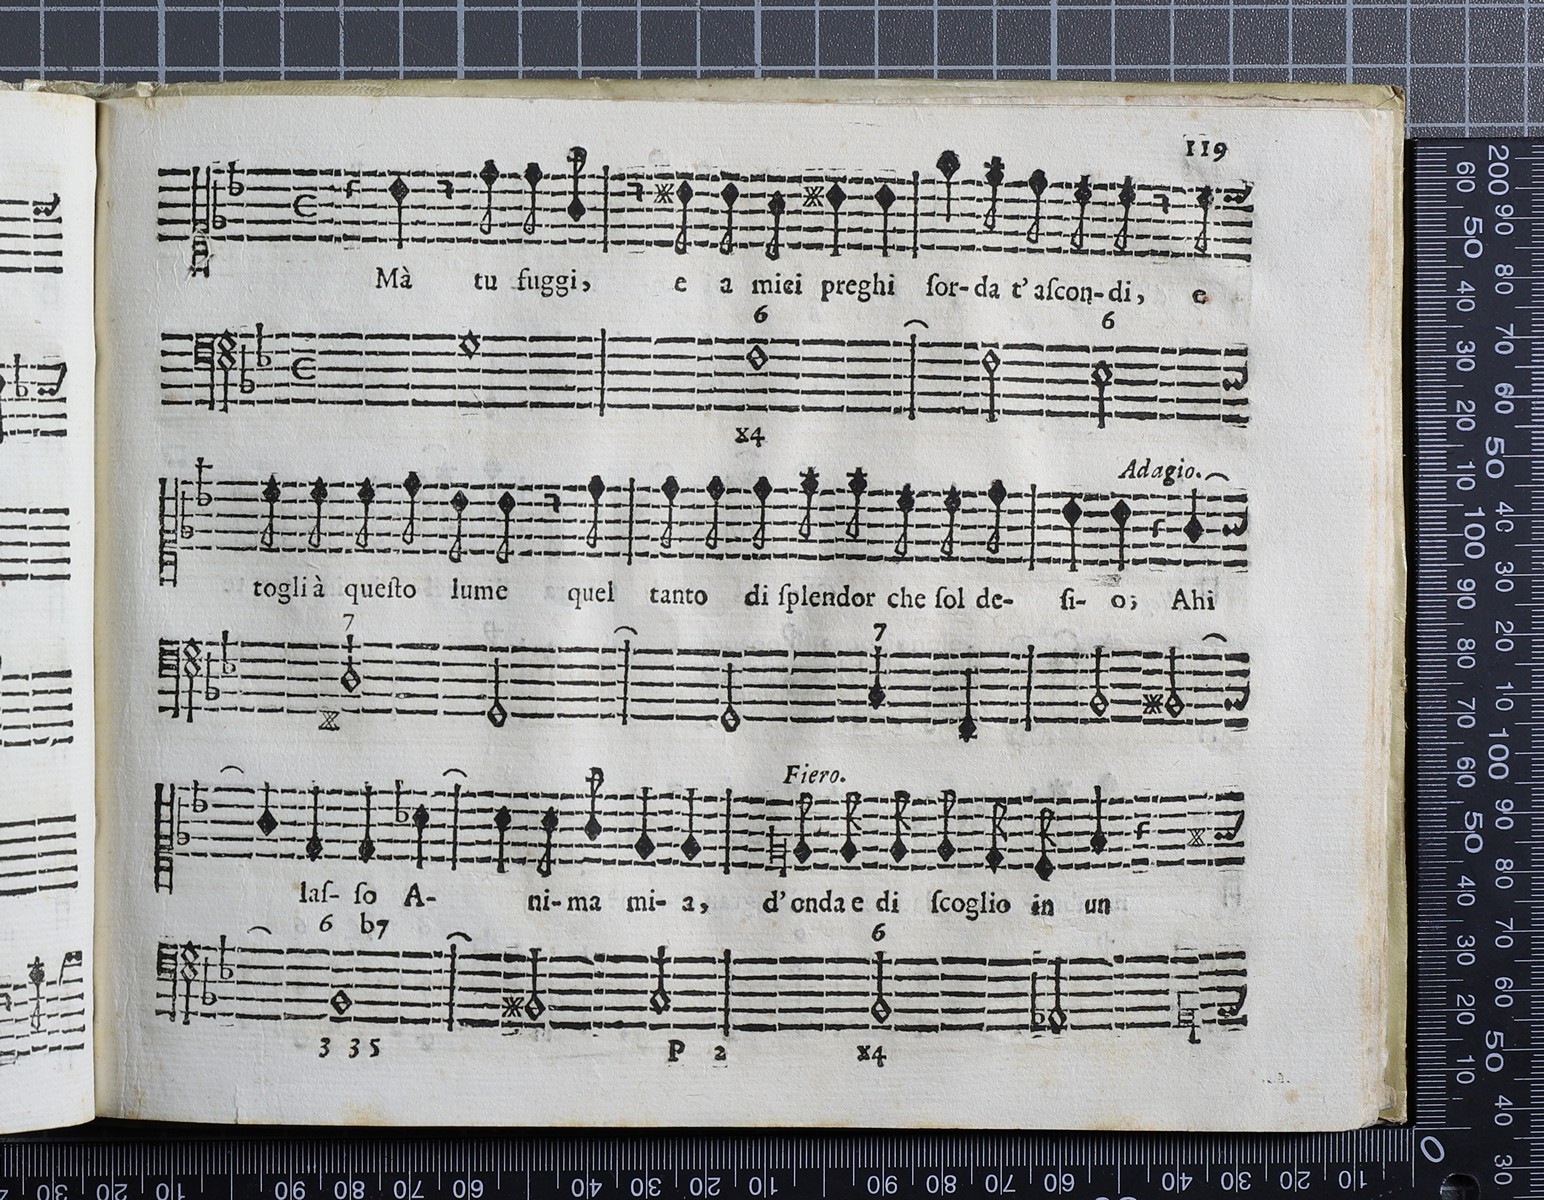 119
Mà tu fuggi, e a miei preghi ſor-da t'aſcon-di, e
6 6
x4
Adagio.
togli à queſto lume quel tanto di ſplendor che ſol de- ſi- o; Ahi
7 7
Fiero.
laſ- ſo A- ni-ma mi- a, d'onda e di ſcoglio in un
6 b7 6
3 3 5 P 2 x4